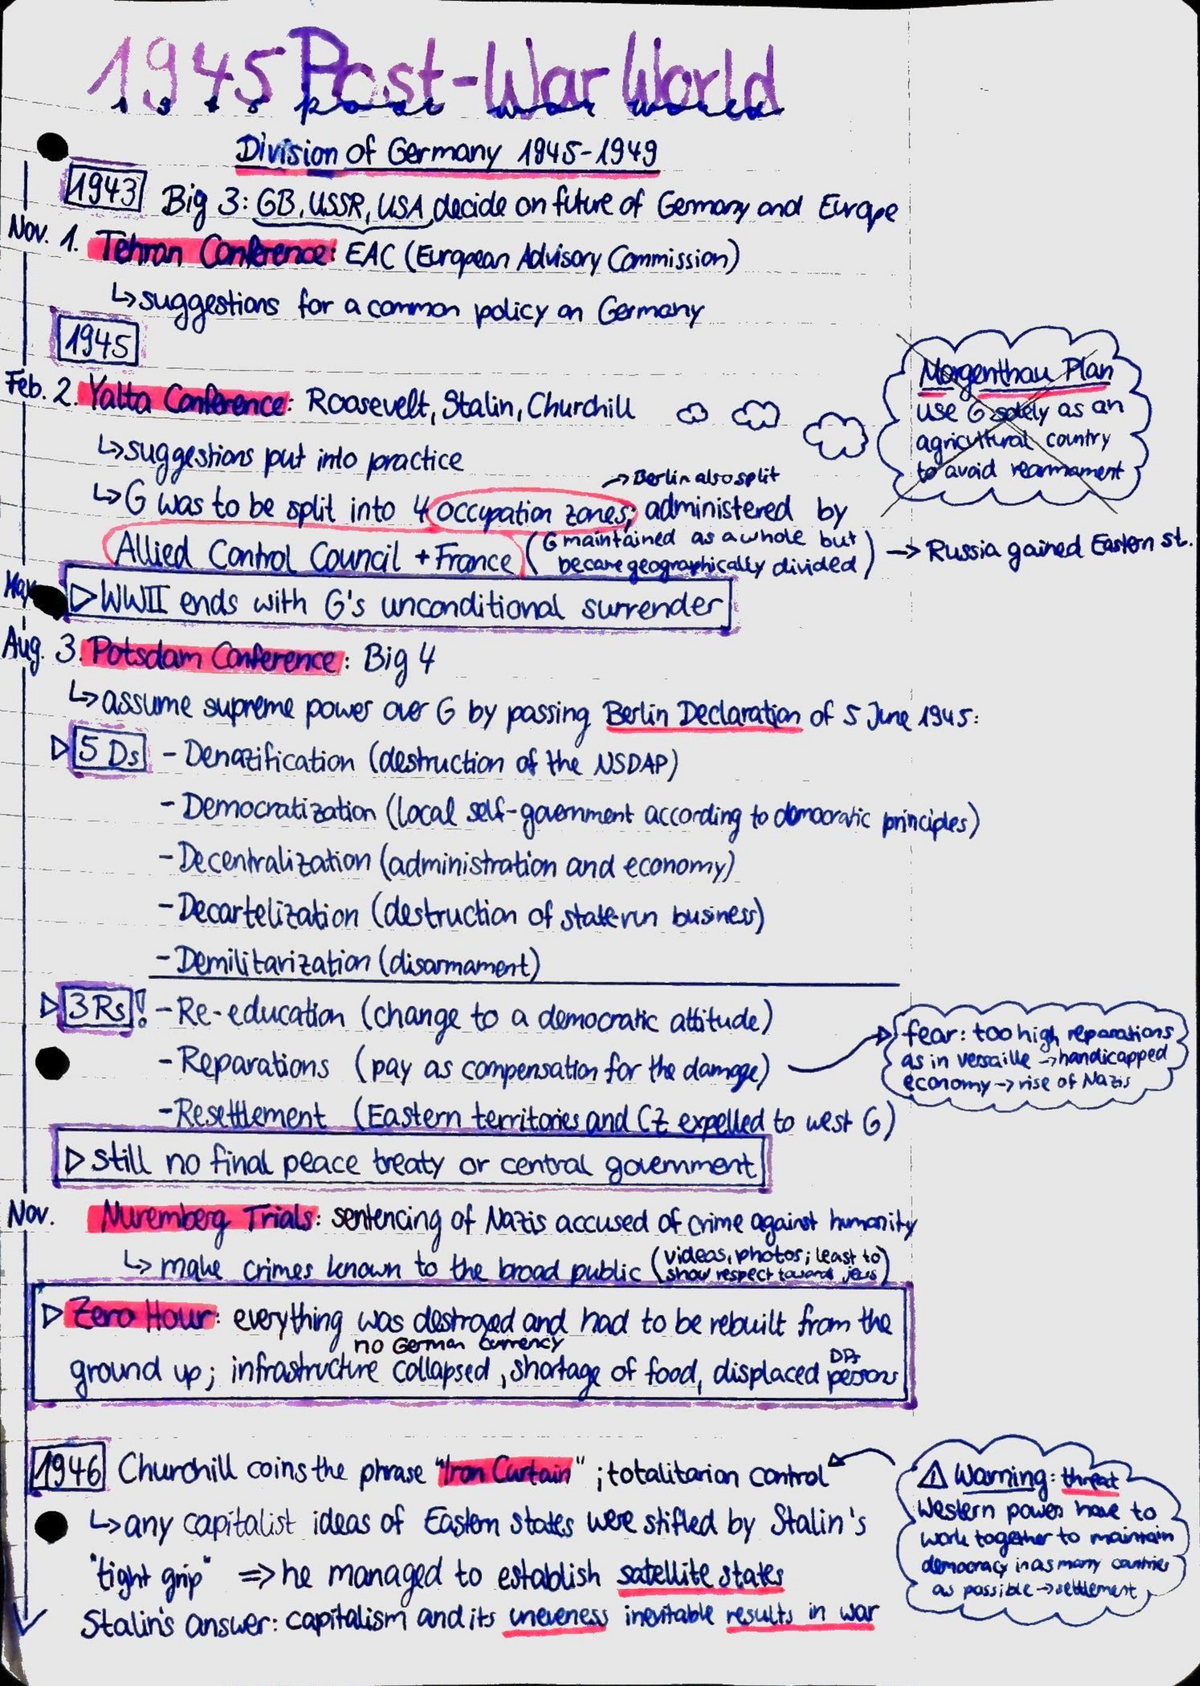 1945 Post-War World
Division of Germany 1945-1949
1943 Big 3: GB, USSR, USA decide on future of Germany and Europe
Nov. 1. Tehran Conference: EAC (European Advisory Commission)
↳ suggestions for a common policy on Germany
1945
Morgenthau Plan
use G solely as an
agricultural country
to avoid rearmament
Feb. 2. Yalta Conference: Roosevelt, Stalin, Churchill
↳ suggestions put into practice
→ Berlin also split
↳ G was to be split into 4 occupation zones; administered by
Allied Control Council + France (G maintained as a whole but
became geographically divided) → Russia gained Eastern st.
▷ WWII ends with G's unconditional surrender
Aug. 3. Potsdam Conference: Big 4
↳ assume supreme power over G by passing Berlin Declaration of 5 June 1945:
▷ 5 Ds - Denazification (destruction of the NSDAP)
- Democratization (local self-government according to democratic principles)
- Decentralization (administration and economy)
- Decartelization (destruction of state-run business)
- Demilitarization (disarmament)
▷ 3 Rs! - Re-education (change to a democratic attitude)
- Reparations (pay as compensation for the damage)
fear: too high reparations
as in versaille → handicapped
economy → rise of Nazis
- Resettlement (Eastern territories and CZ expelled to west G)
▷ still no final peace treaty or central government
Nov. Nuremberg Trials: sentencing of Nazis accused of crime against humanity
↳ make crimes known to the broad public (videos, photos; least to
show respect toward jews)
▷ Zero Hour: everything was destroyed and had to be rebuilt from the
no German currency
ground up; infrastructure collapsed, shortage of food, displaced persons
DPs
1946 Churchill coins the phrase "Iron Curtain"; totalitarian control
↳ any capitalist ideas of Eastern states were stifled by Stalin's
"tight grip" ⇒ he managed to establish satellite states
Stalin's answer: capitalism and its uneveness inevitable results in war
⚠ Warning: threat
Western powers have to
work together to maintain
democracy in as many countries
as possible → settlement